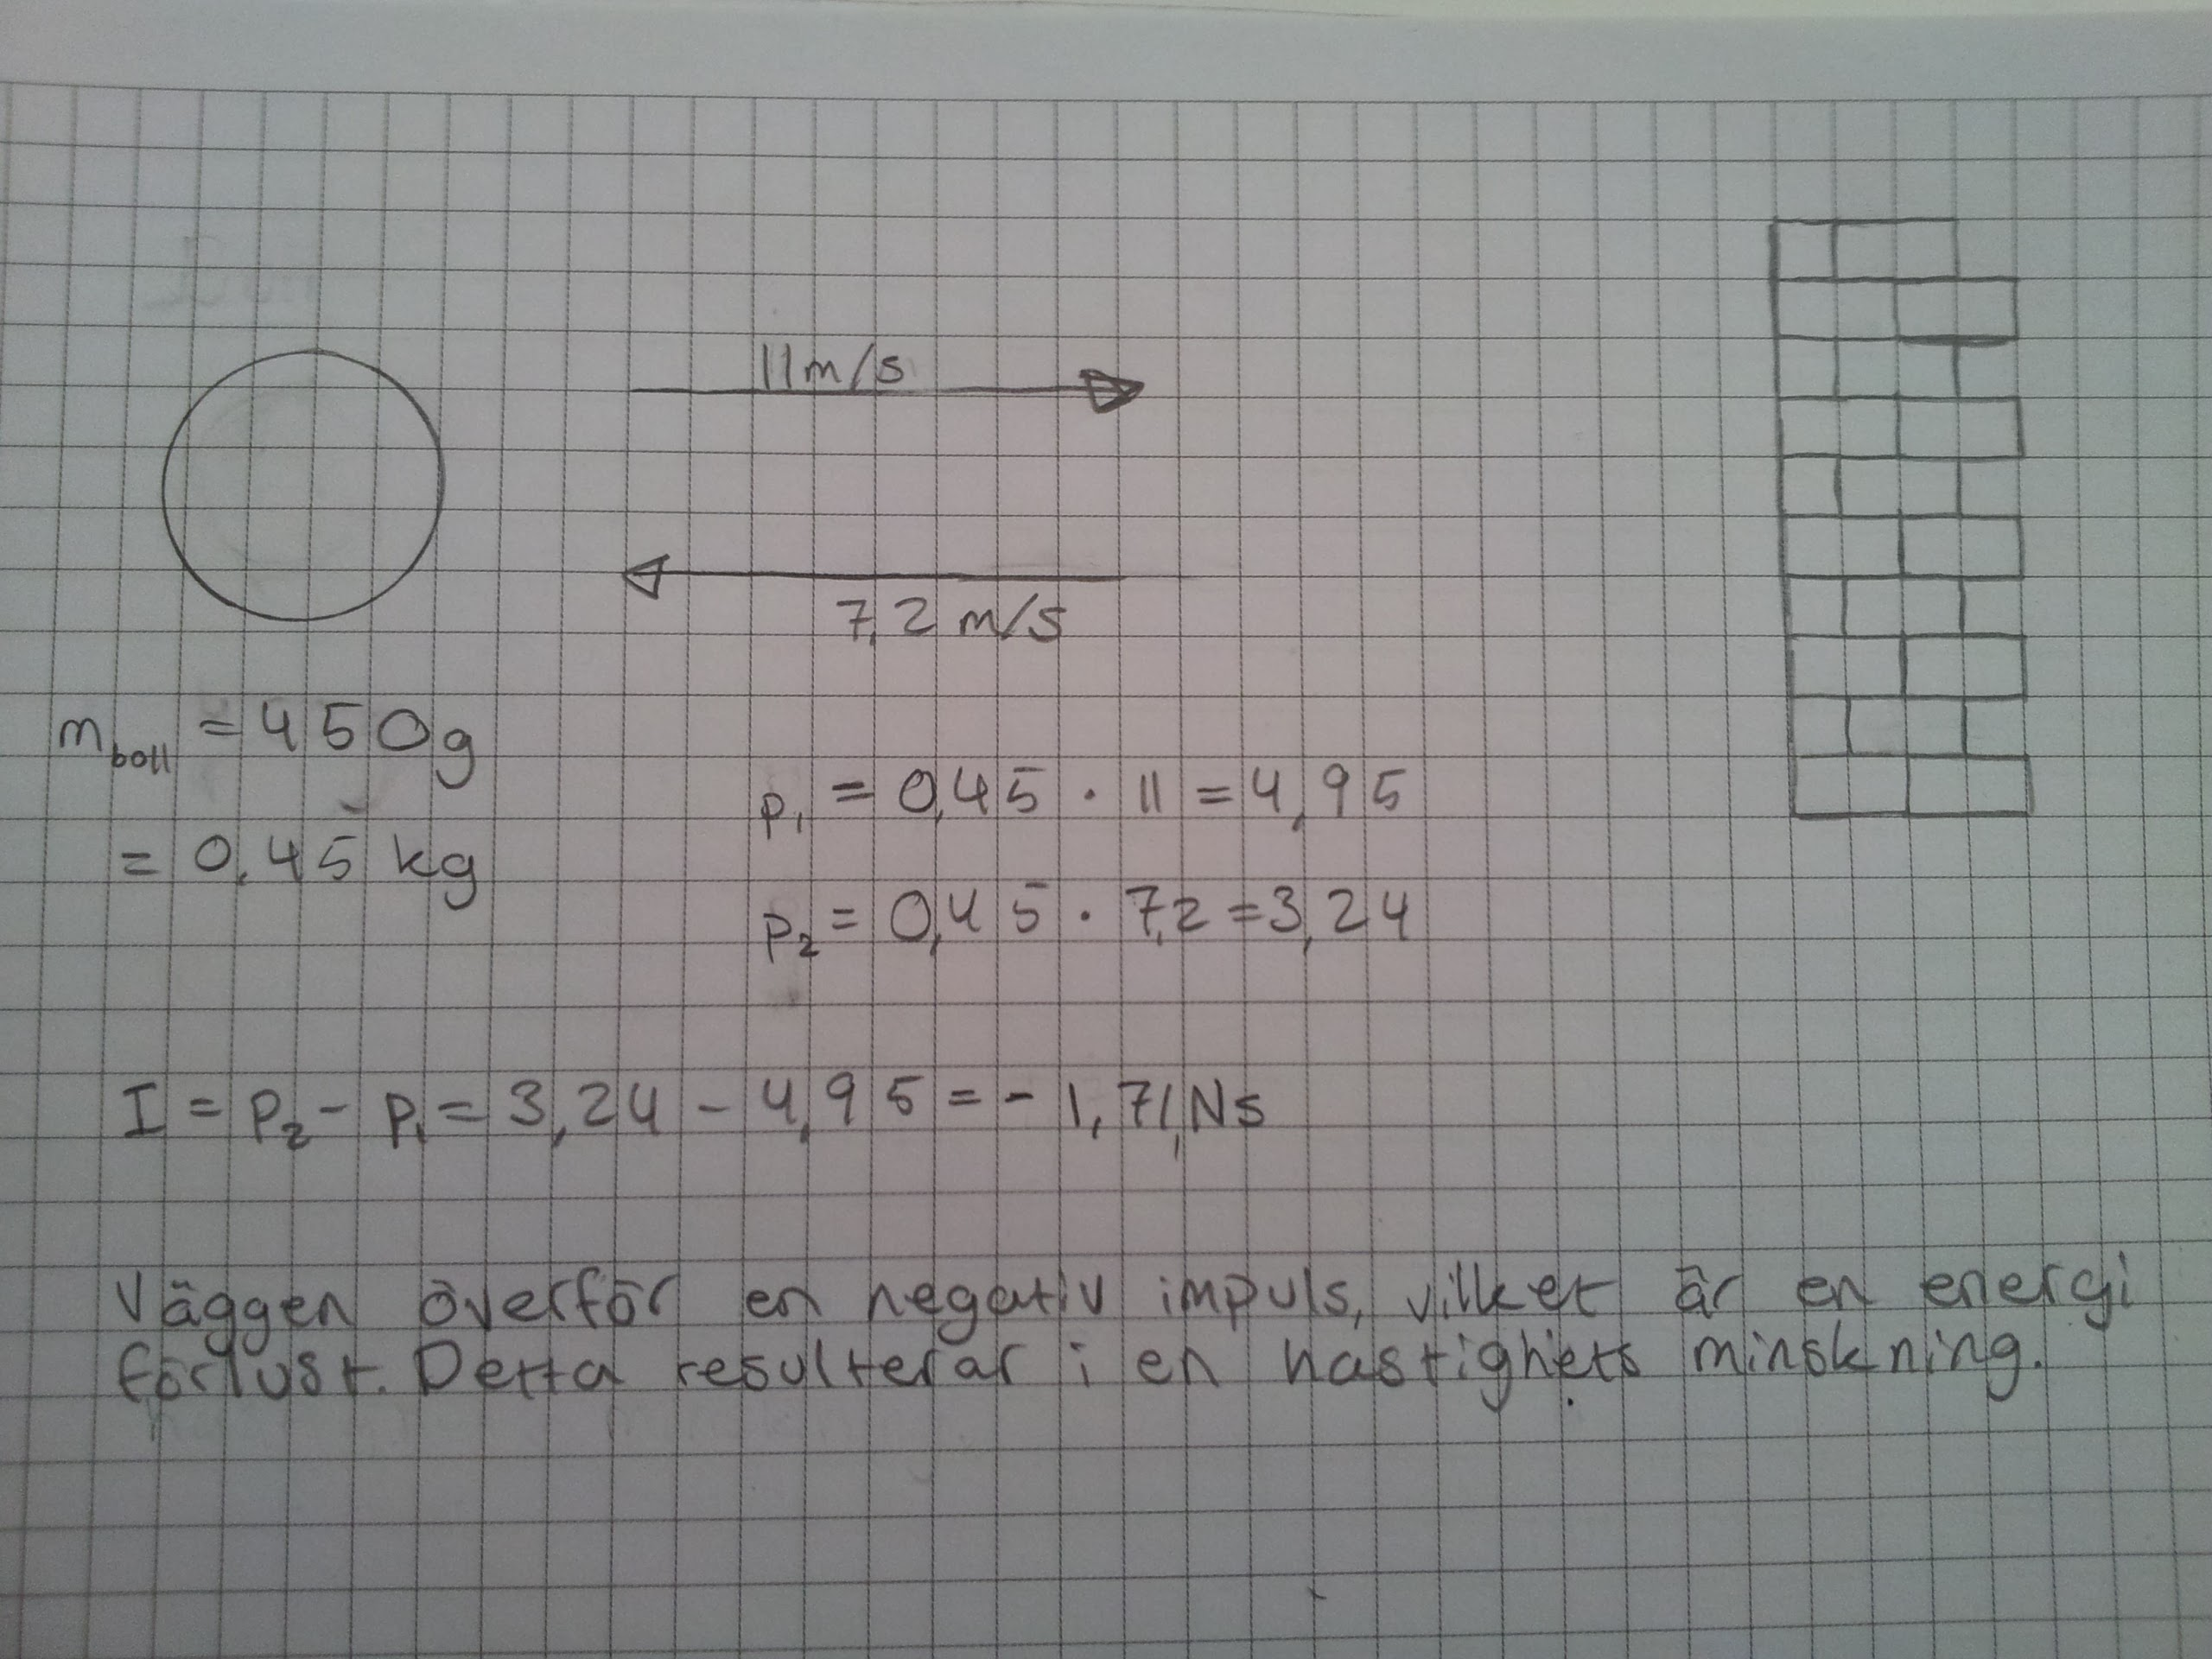 11m/s
7,2 m/s
m_boll = 450g
= 0,45 kg
p₁ = 0,45 · 11 = 4,95
p₂ = 0,45 · 7,2 = 3,24
I = p₂ - p₁ = 3,24 - 4,95 = - 1,71 Ns
Väggen överför en negativ impuls, vilket är en energi
förlust. Detta resulterar i en hastighets minskning.